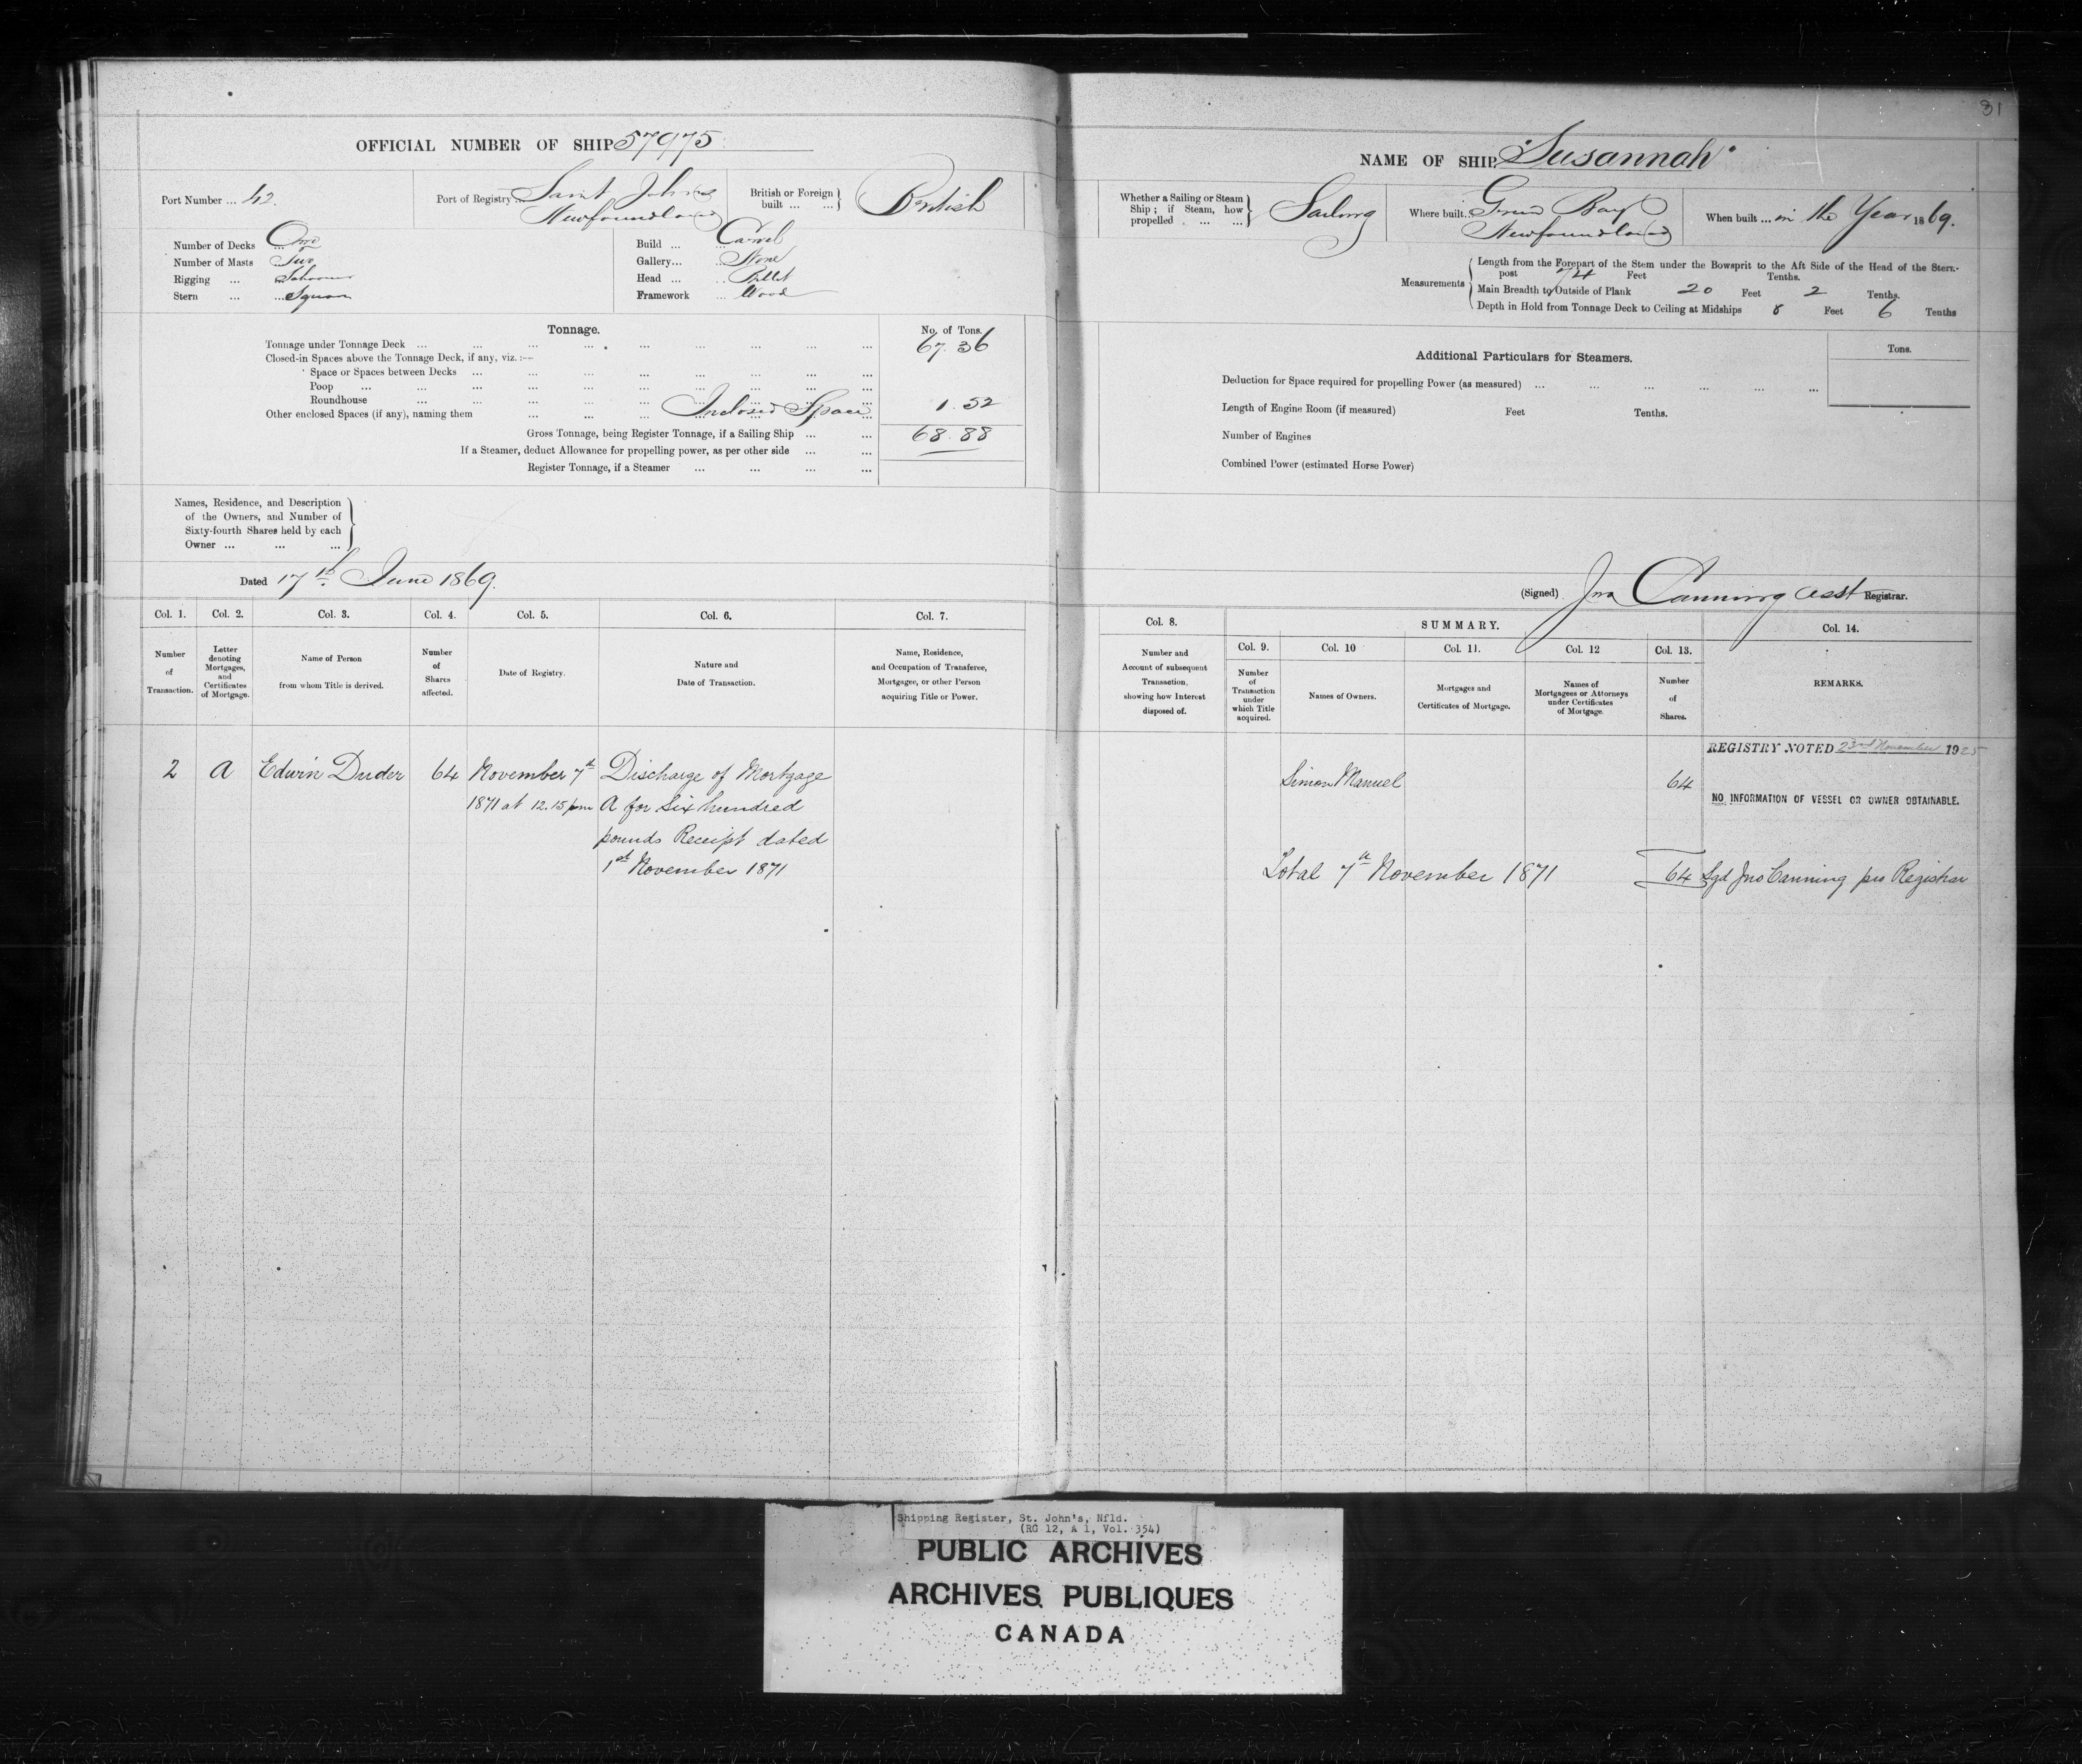 31
OFFICIAL NUMBER OF SHIP 57975
NAME OF SHIP "Susannah"
Port Number ... 42.
Port of Registry ... Saint Johns
Newfoundland
British or Foreign built ... ... } British
Number of Decks ... One
Number of Masts ... Two
Rigging ... Schooner
Stern ... ... Square
Build ... ... Carvel
Gallery... ... None
Head ... ... Billet
Framework ... Wood
Whether a Sailing or Steam Ship ; if Steam, how propelled ... ... } Sailing
Where built. Green Bay
Newfoundland
When built ... in the Year 1869.
Measurements
Length from the Forepart of the Stem under the Bowsprit to the Aft Side of the Head of the Stern-
post 74 Feet Tenths.
Main Breadth to Outside of Plank 20 Feet 2 Tenths.
Depth in Hold from Tonnage Deck to Ceiling at Midships 8 Feet 6 Tenths
Tonnage. No. of Tons.
Tonnage under Tonnage Deck ... 67.36
Closed-in Spaces above the Tonnage Deck, if any, viz. :—
Space or Spaces between Decks ...
Poop ...
Roundhouse ...
Other enclosed Spaces (if any), naming them ... Inclosed Space 1.52
Gross Tonnage, being Register Tonnage, if a Sailing Ship ... 68.88
If a Steamer, deduct Allowance for propelling power, as per other side ...
Register Tonnage, if a Steamer ...
Additional Particulars for Steamers. Tons.
Deduction for Space required for propelling Power (as measured) ...
Length of Engine Room (if measured) Feet Tenths.
Number of Engines
Combined Power (estimated Horse Power)
Names, Residence, and Description
of the Owners, and Number of
Sixty-fourth Shares held by each
Owner ... ... ...
Dated 17th June 1869.
(Signed) Jno Canning asst Registrar.
Col. 1. Col. 2. Col. 3. Col. 4. Col. 5. Col. 6. Col. 7.
Number of Transaction.
Letter denoting Mortgages, and Certificates of Mortgage.
Name of Person from whom Title is derived.
Number of Shares affected.
Date of Registry.
Nature and Date of Transaction.
Name, Residence, and Occupation of Transferee, Mortgagee, or other Person acquiring Title or Power.
Col. 8. SUMMARY. Col. 14.
Col. 9. Col. 10 Col. 11. Col. 12 Col. 13.
Number and Account of subsequent Transaction, showing how Interest disposed of.
Number of Transaction under which Title acquired.
Names of Owners.
Mortgages and Certificates of Mortgage.
Names of Mortgagees or Attorneys under Certificates of Mortgage.
Number of Shares.
REMARKS.
2 A Edwin Duder 64 November 7th Discharge of Mortgage
1871 at 12.15 pm A for Six hundred
pounds Receipt dated
1st November 1871
REGISTRY NOTED 23rd November 1925
Simon Manuel 64
NO INFORMATION OF VESSEL OR OWNER OBTAINABLE.
Total 7th November 1871 64 Sgd Jno Canning pro Registrar
Shipping Register, St. John's, Nfld.
(RG 12, A 1, Vol. 354)
PUBLIC ARCHIVES
ARCHIVES PUBLIQUES
CANADA